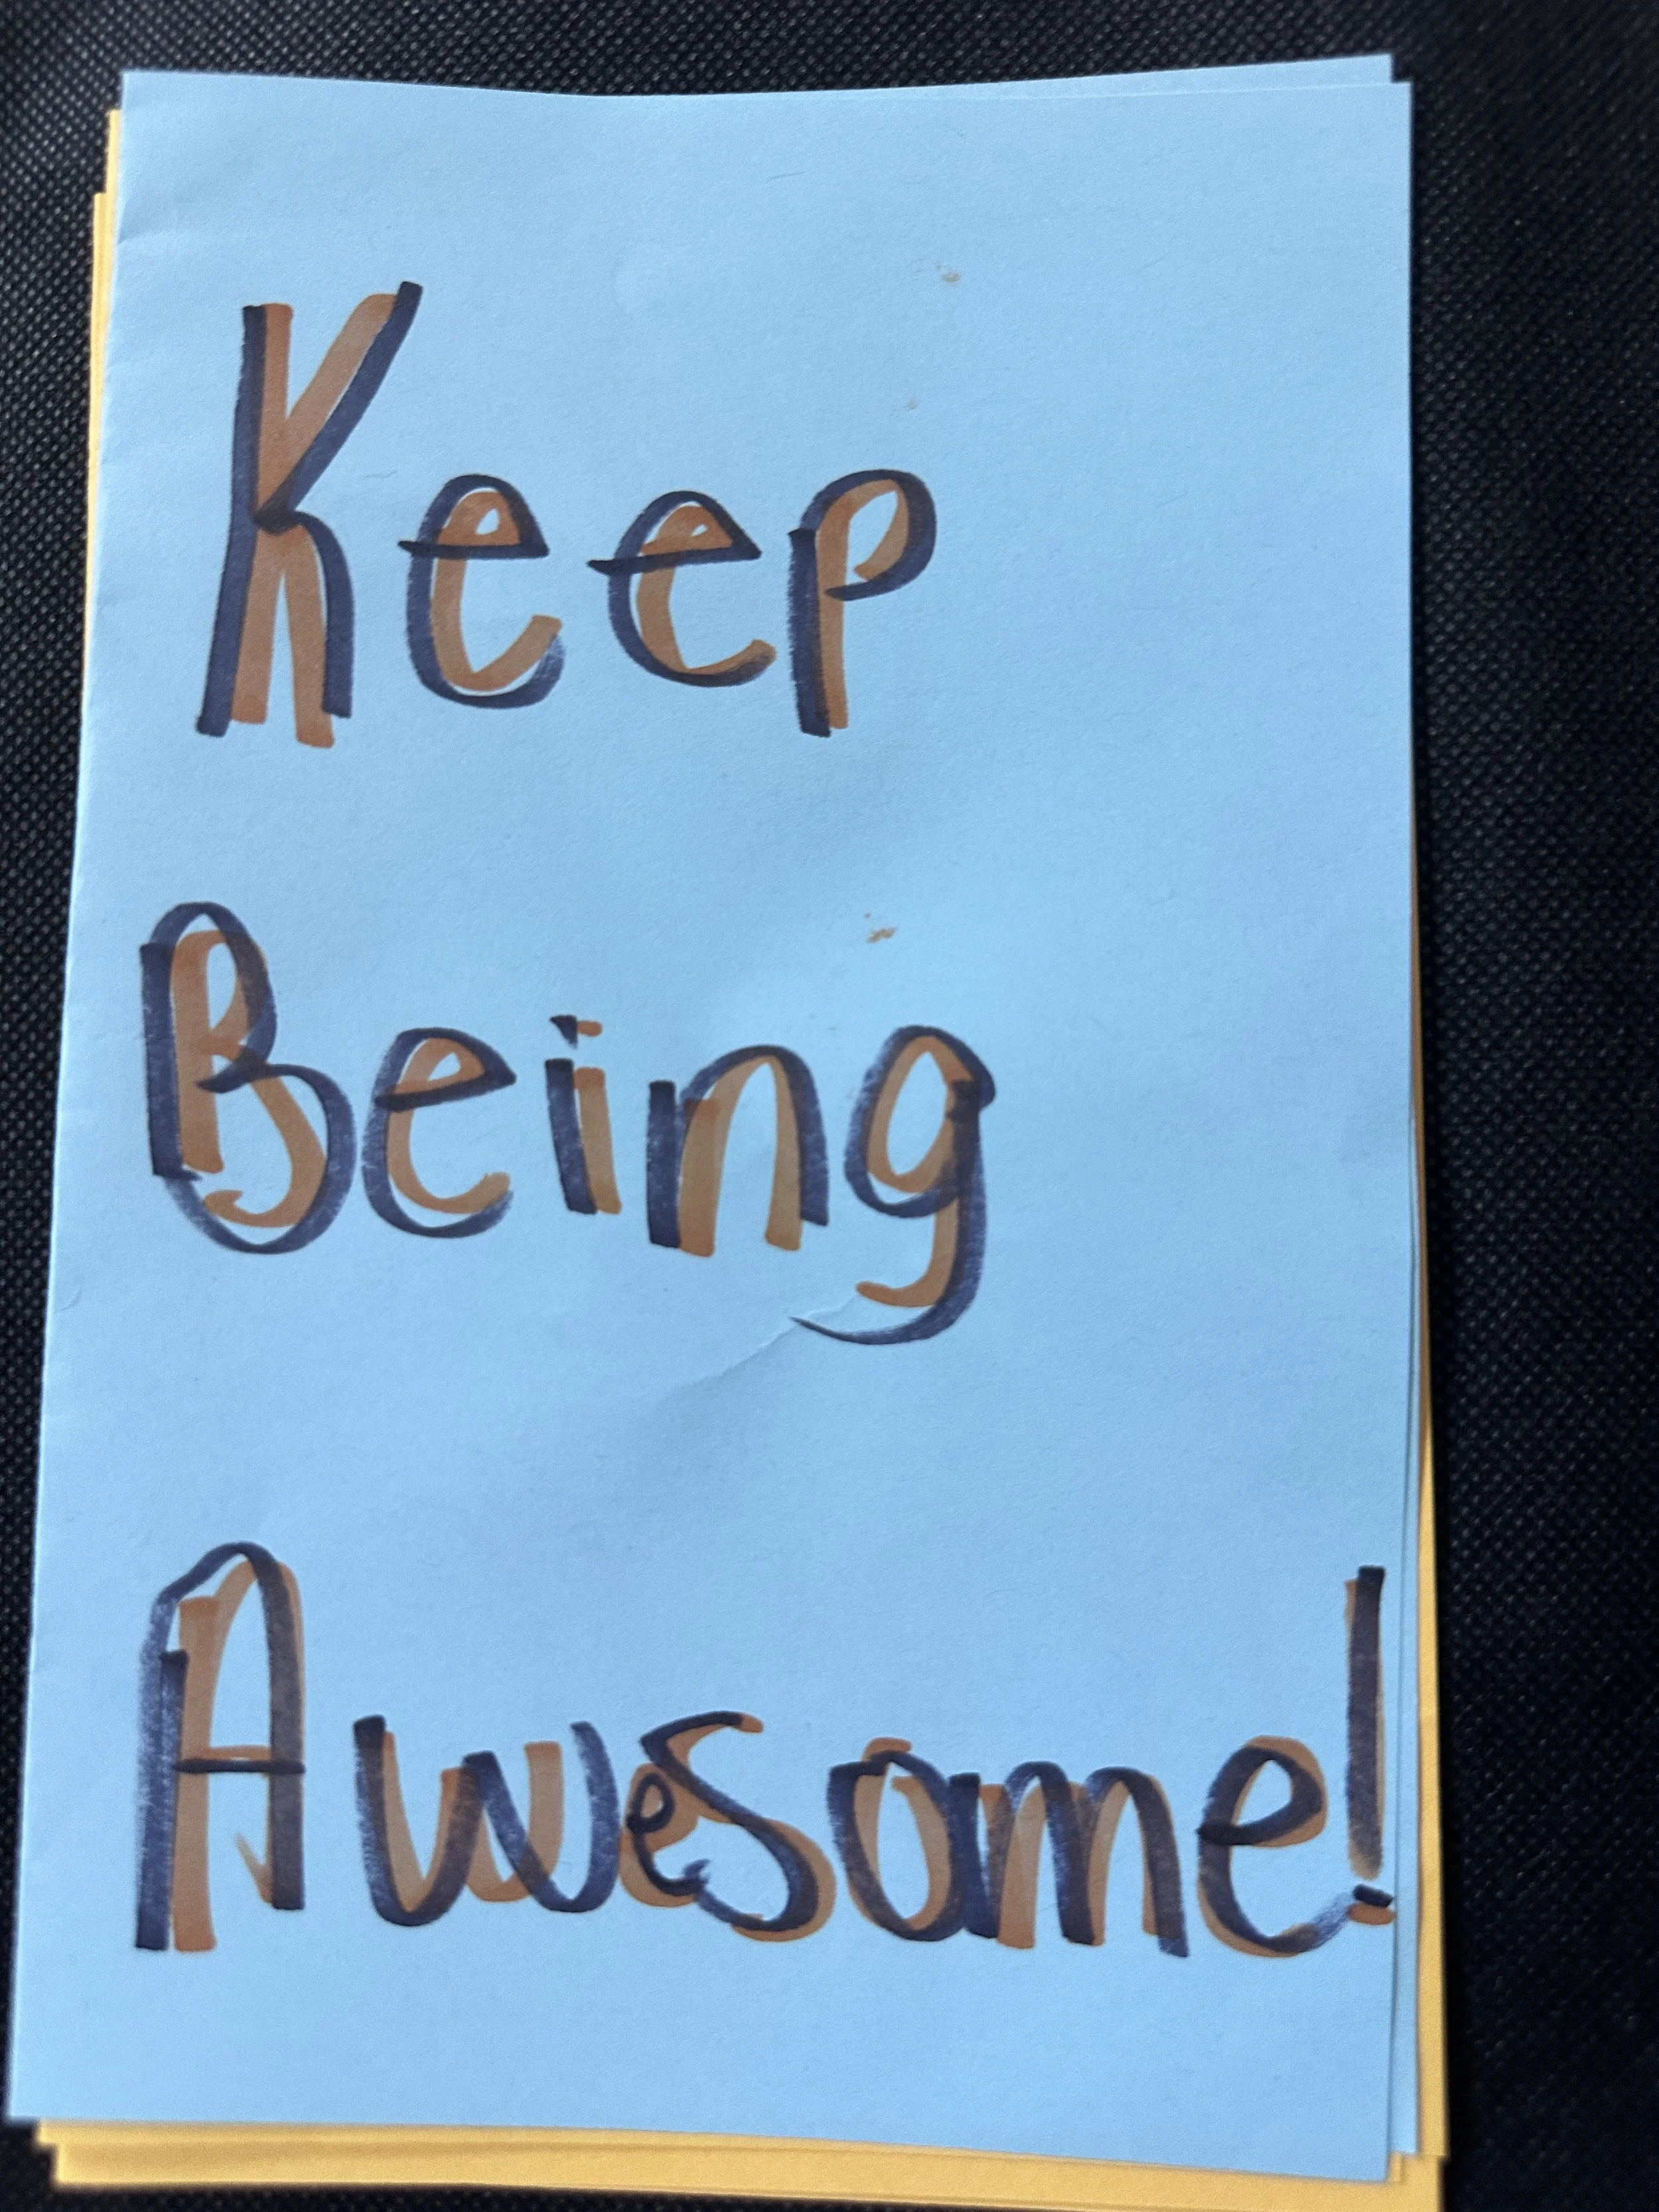 Keep
Being
Awesome!